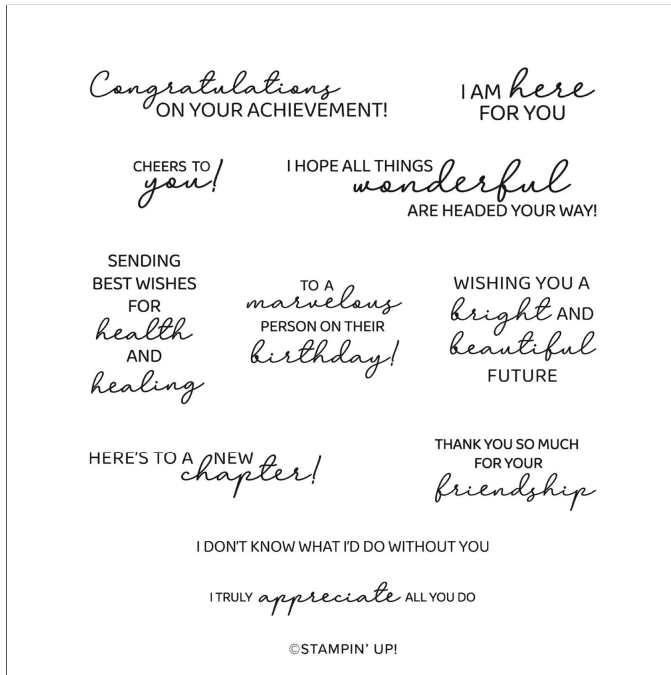 Congratulations
ON YOUR ACHIEVEMENT!
I AM here
FOR YOU
CHEERS TO
you!
I HOPE ALL THINGS
wonderful
ARE HEADED YOUR WAY!
SENDING
BEST WISHES
FOR
health
AND
healing
TO A
marvelous
PERSON ON THEIR
birthday!
WISHING YOU A
bright AND
beautiful
FUTURE
HERE'S TO A NEW
chapter!
THANK YOU SO MUCH
FOR YOUR
friendship
I DON'T KNOW WHAT I'D DO WITHOUT YOU
I TRULY appreciate ALL YOU DO
©STAMPIN' UP!